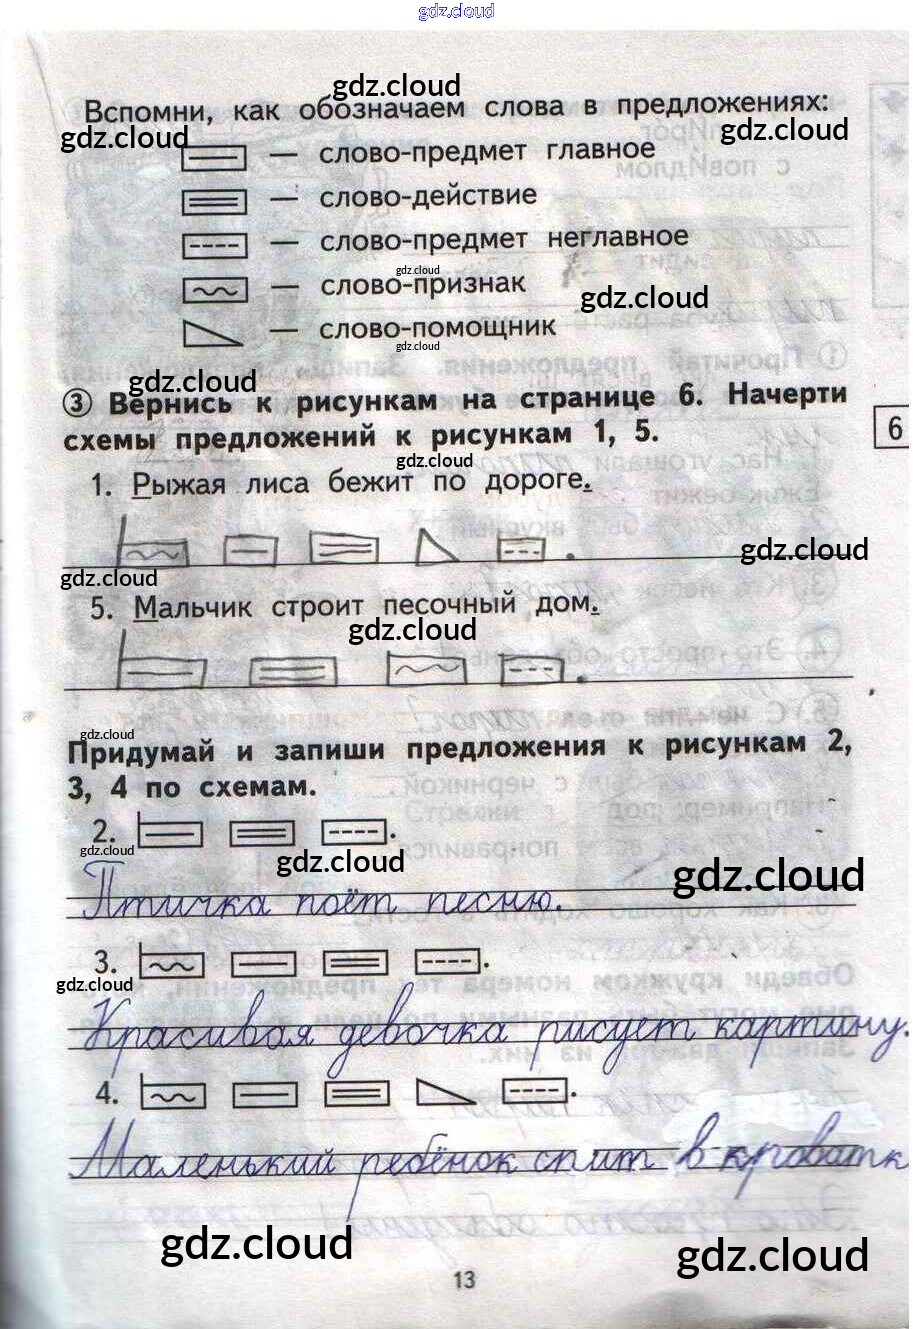 gdz.cloud
Вспомни, как обозначаем слова в предложениях:
gdz.cloud
gdz.cloud
gdz.cloud
— слово-предмет главное
— слово-действие
— слово-предмет неглавное
gdz.cloud
— слово-признак
gdz.cloud
— слово-помощник
gdz.cloud
gdz.cloud
③ Вернись к рисункам на странице 6. Начерти
схемы предложений к рисункам 1, 5.
6
gdz.cloud
1. Рыжая лиса бежит по дороге.
gdz.cloud
gdz.cloud
5. Мальчик строит песочный дом.
gdz.cloud
gdz.cloud
Придумай и запиши предложения к рисункам 2,
3, 4 по схемам.
2.
gdz.cloud
gdz.cloud
gdz.cloud
Птичка поёт песню.
3.
gdz.cloud
Красивая девочка рисует картину.
4.
Маленький ребёнок спит в кроватк
gdz.cloud
gdz.cloud
13